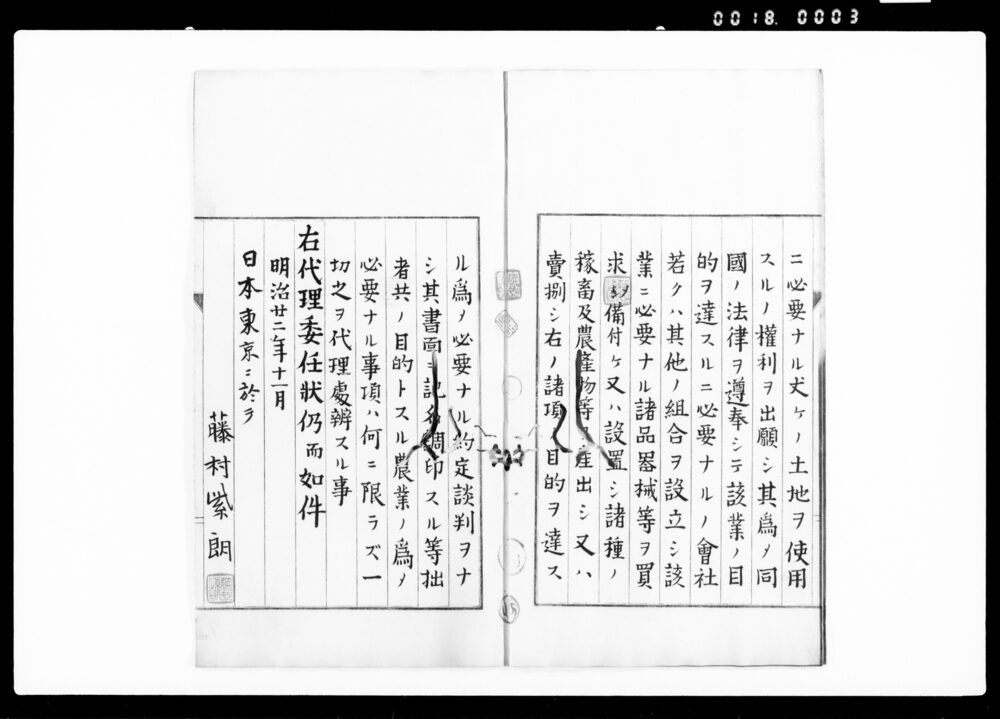 0018 0003
ニ必要ナル丈ケノ土地ヲ使用
スルノ權利ヲ出願シ其爲メ同
國ノ法律ヲ遵奉シテ該業ノ目
的ヲ達スルニ必要ナルノ會社
若クハ其他ノ組合ヲ設立シ該
業ニ必要ナル諸品器械等ヲ買
求メ備付ケ又ハ設置シ諸種ノ
稼畜及農産物等ヲ産出シ又ハ
賣捌シ右ノ諸項ノ目的ヲ達ス
ル爲メ必要ナル約定談判ヲナ
シ其書面ニ記名調印スル等拙
者共ノ目的トスル農業ノ爲メ
必要ナル事項ハ何ニ限ラズ一
切之ヲ代理處辨スル事
右代理委任状仍而如件
明治廿二年十一月
日本東京ニ於ヲ
藤村紫朗